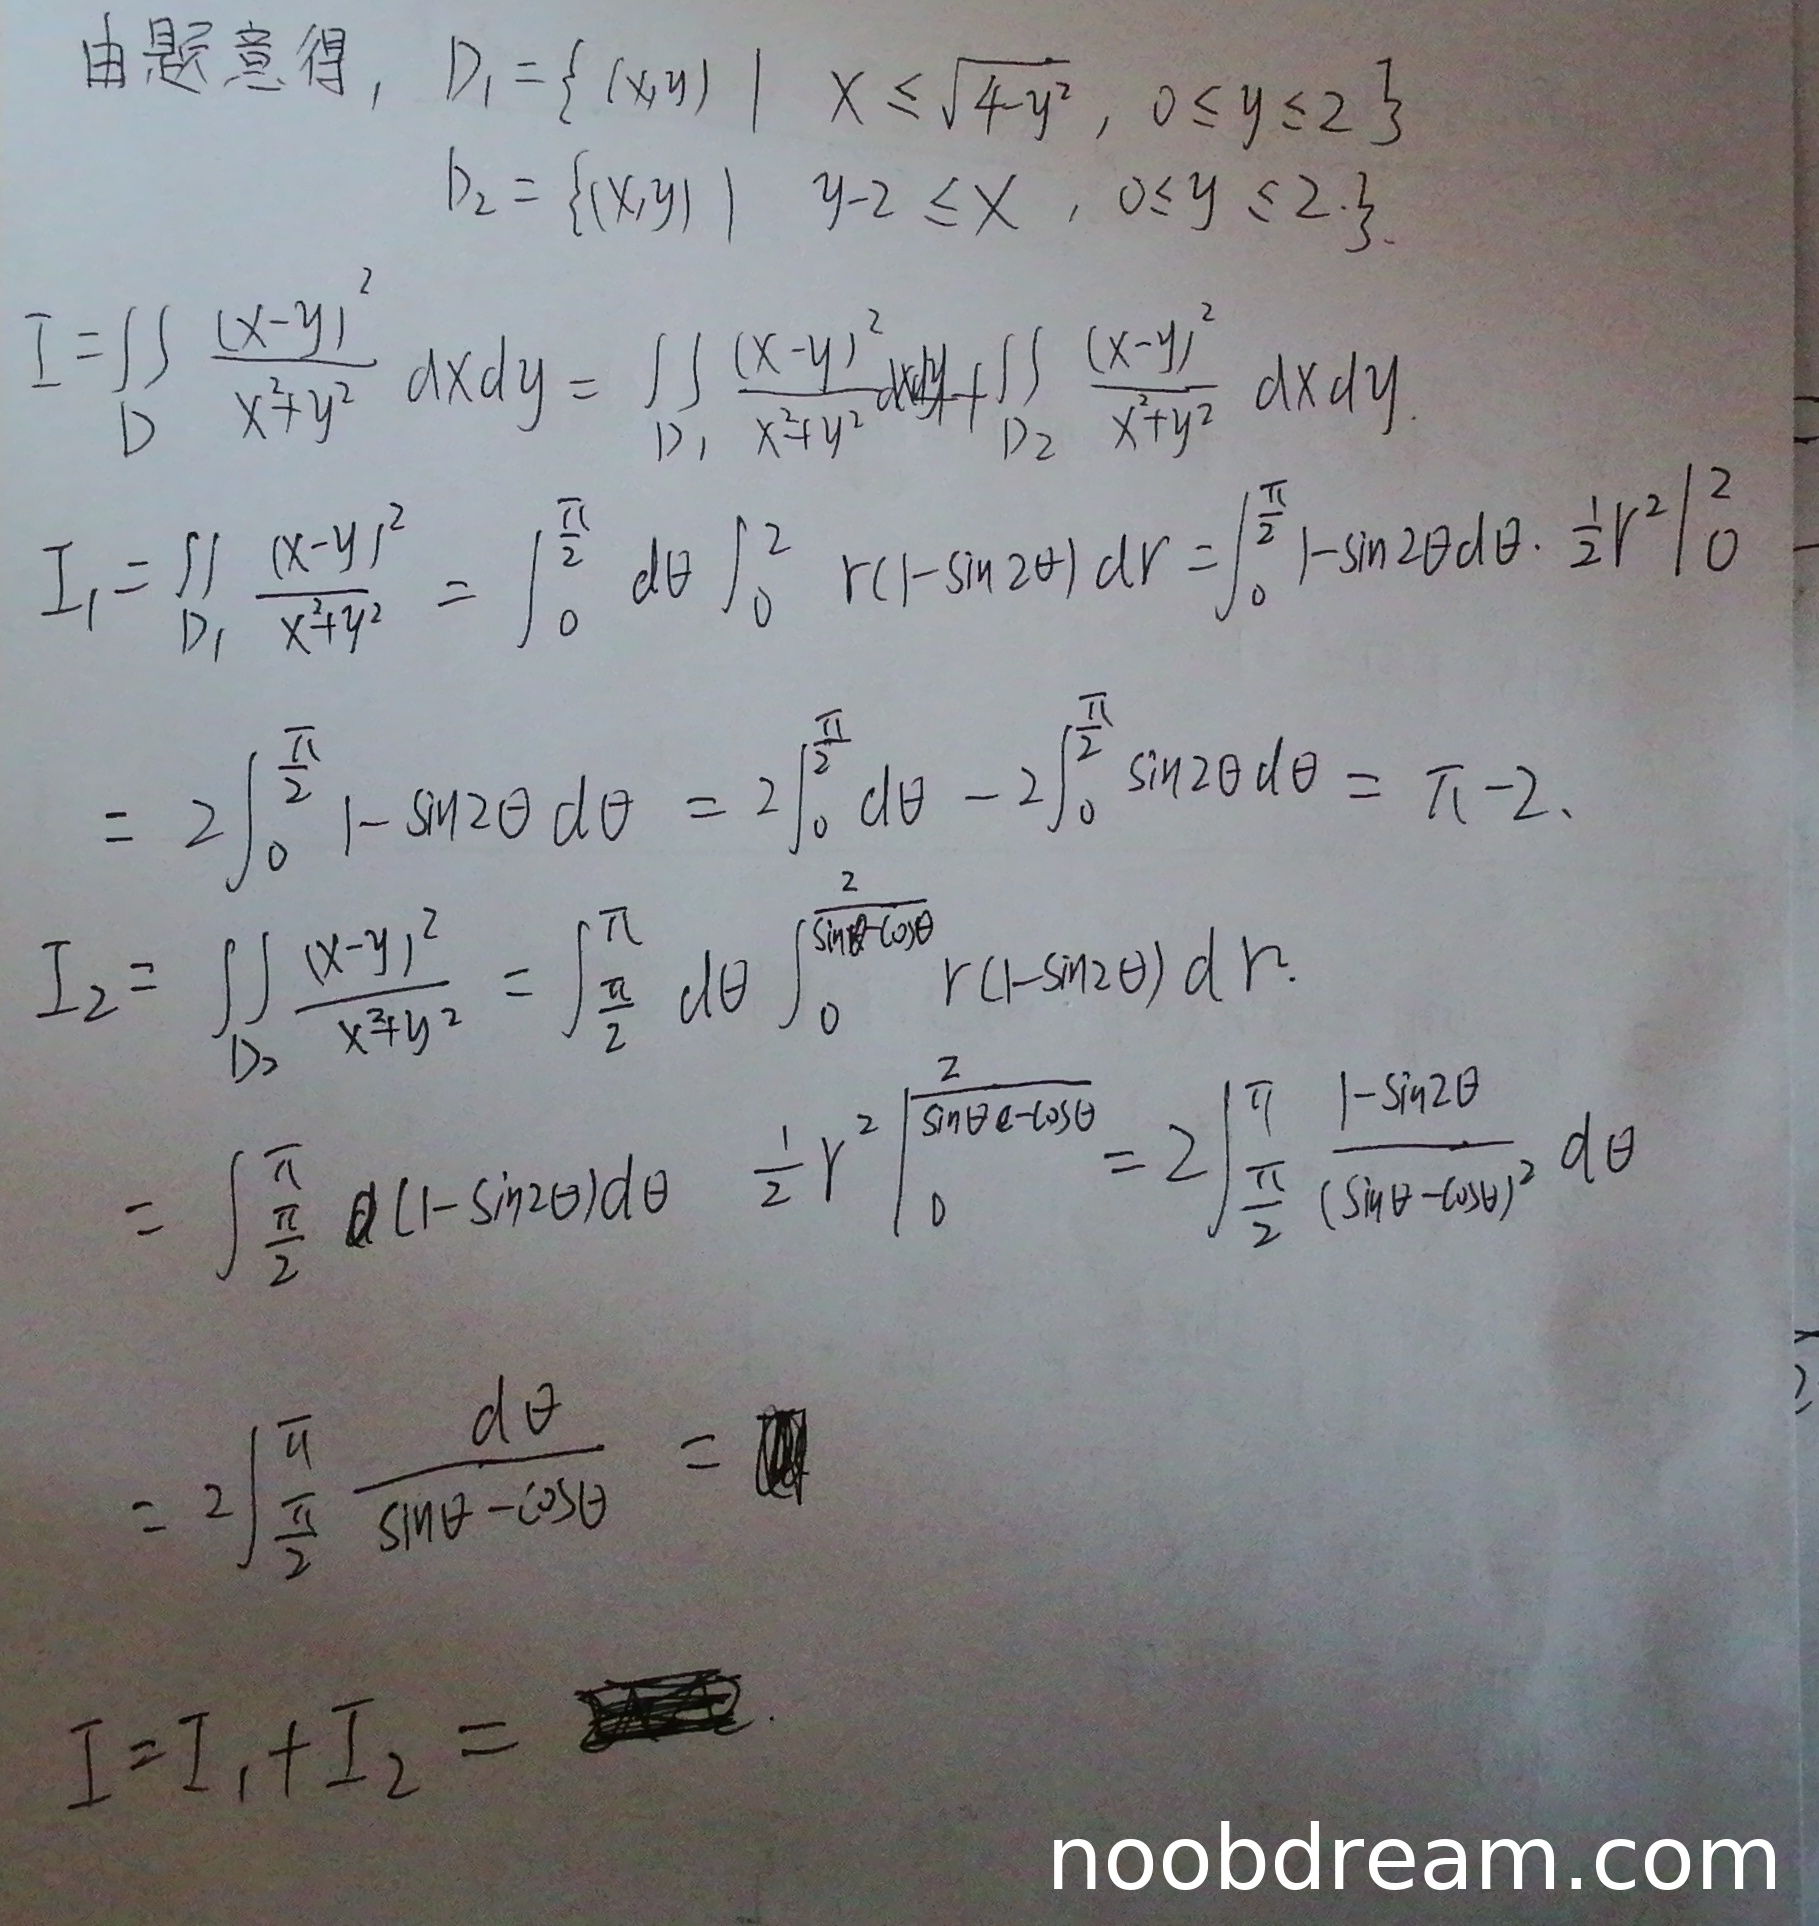 由题意得, D₁={(x,y) | x ≤ √(4-y²), 0≤y≤2}
D₂={(x,y) | y-2 ≤ x, 0≤y≤2.}.
I = ∬_D (x-y)²/(x²+y²) dxdy = ∬_D₁ (x-y)²/(x²+y²) dxdy + ∬_D₂ (x-y)²/(x²+y²) dxdy.
I₁ = ∬_D₁ (x-y)²/(x²+y²) = ∫_0^(π/2) dθ ∫_0^2 r(1-sin2θ) dr = ∫_0^(π/2) 1-sin2θdθ · ½r² |_0^2
= 2∫_0^(π/2) 1-sin2θ dθ = 2∫_0^(π/2) dθ - 2∫_0^(π/2) sin2θdθ = π-2.
I₂ = ∬_D₂ (x-y)²/(x²+y²) = ∫_(π/2)^π dθ ∫_0^(2/(sinθ-cosθ)) r(1-sin2θ) dr.
= ∫_(π/2)^π (1-sin2θ)dθ ½r² |_0^(2/(sinθ-cosθ)) = 2∫_(π/2)^π (1-sin2θ)/(sinθ-cosθ)² dθ
= 2∫_(π/2)^π dθ/(sinθ-cosθ) =
I = I₁+I₂ =
noobdream.com